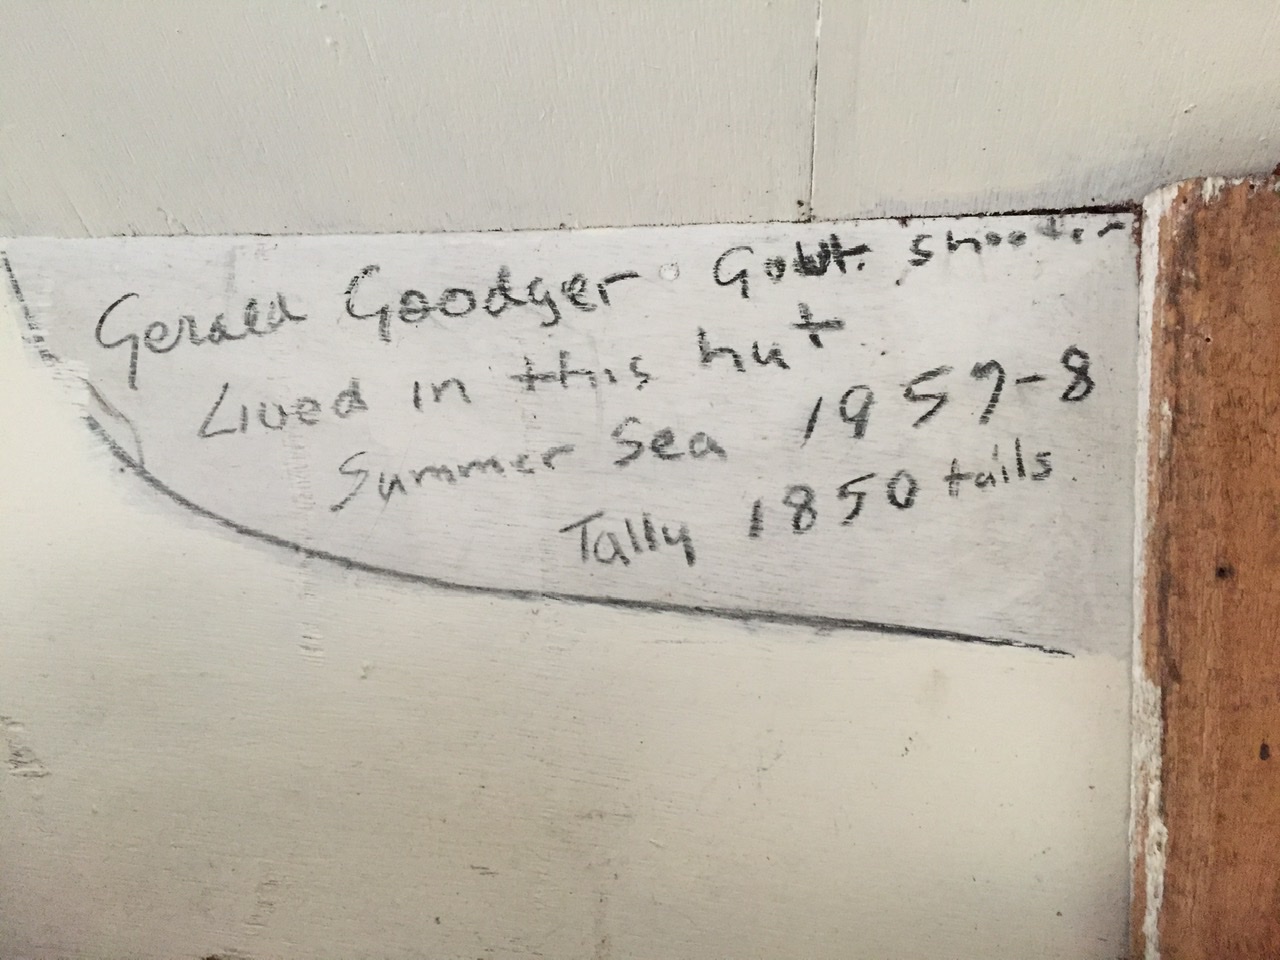 Gerald Goodger Govt. shooter
Lived in this hut
Summer Sea 1957-8
Tally 1850 tails